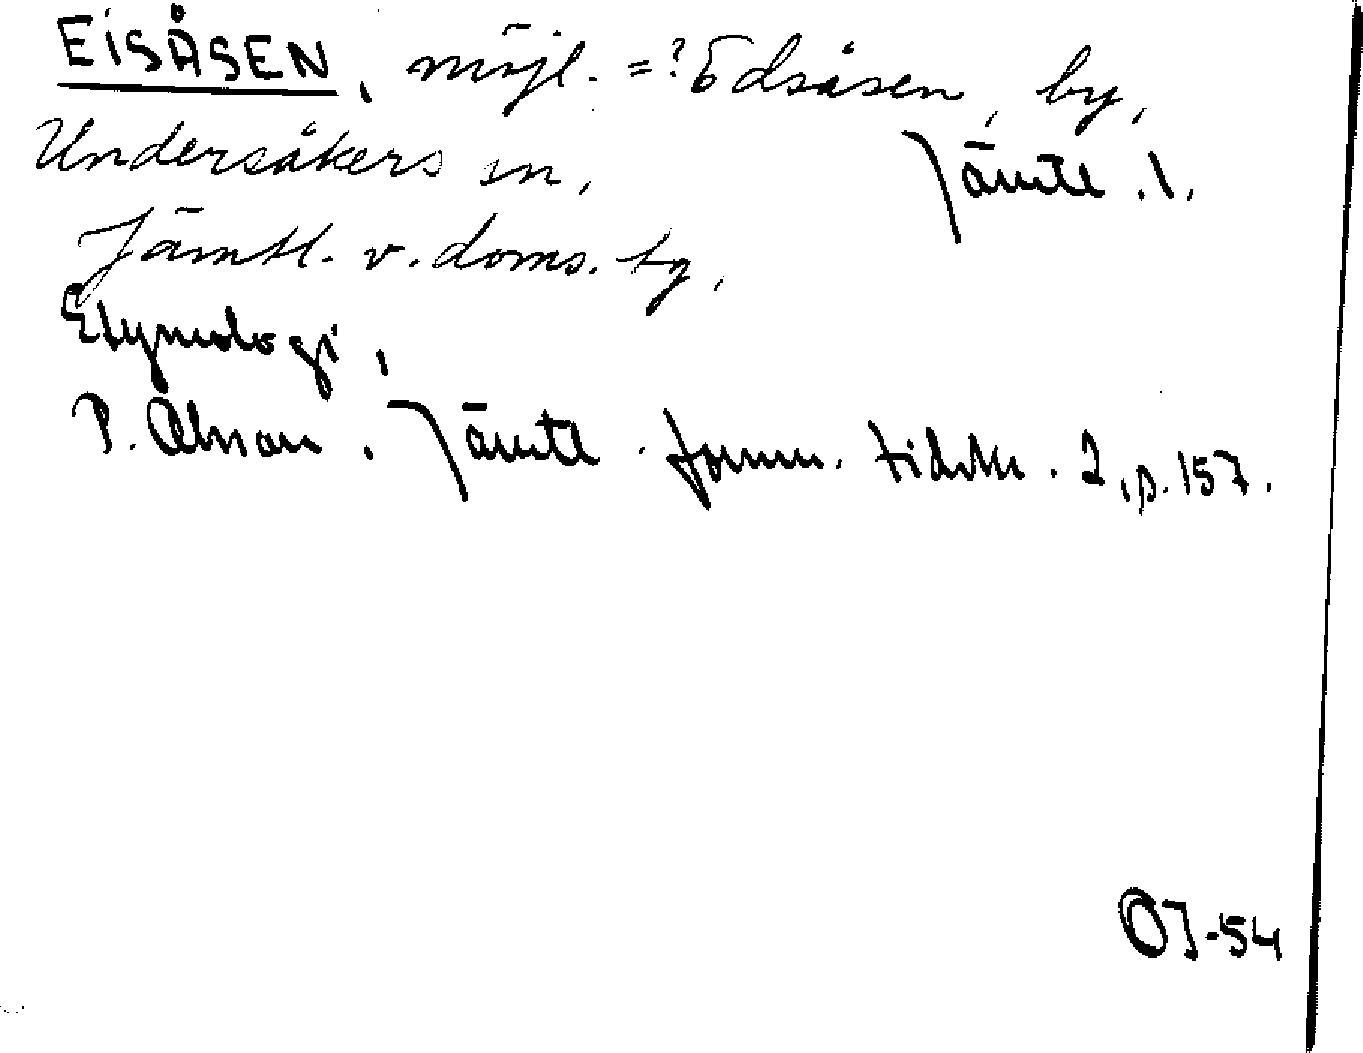 EISÅSEN, möjl. =? Edsåsen, by,
Undersåkers sn,
Jämtl. l.
Jämtl. v. doms. tg,
Etymologi,
P. Olsson. Jämtl. fornm. tidskr. 2, p. 157.
OJ-54